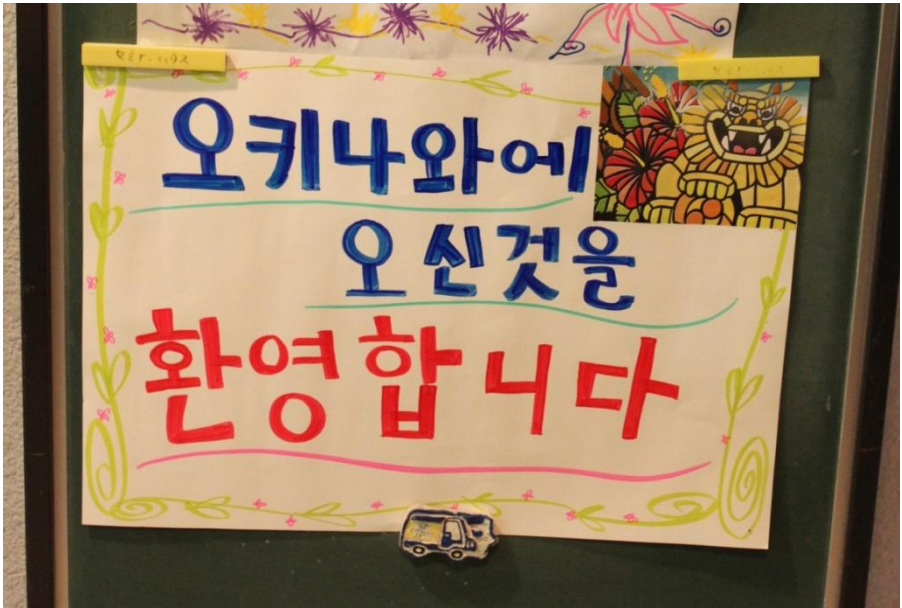 오키나와에
오신것을
환영합니다